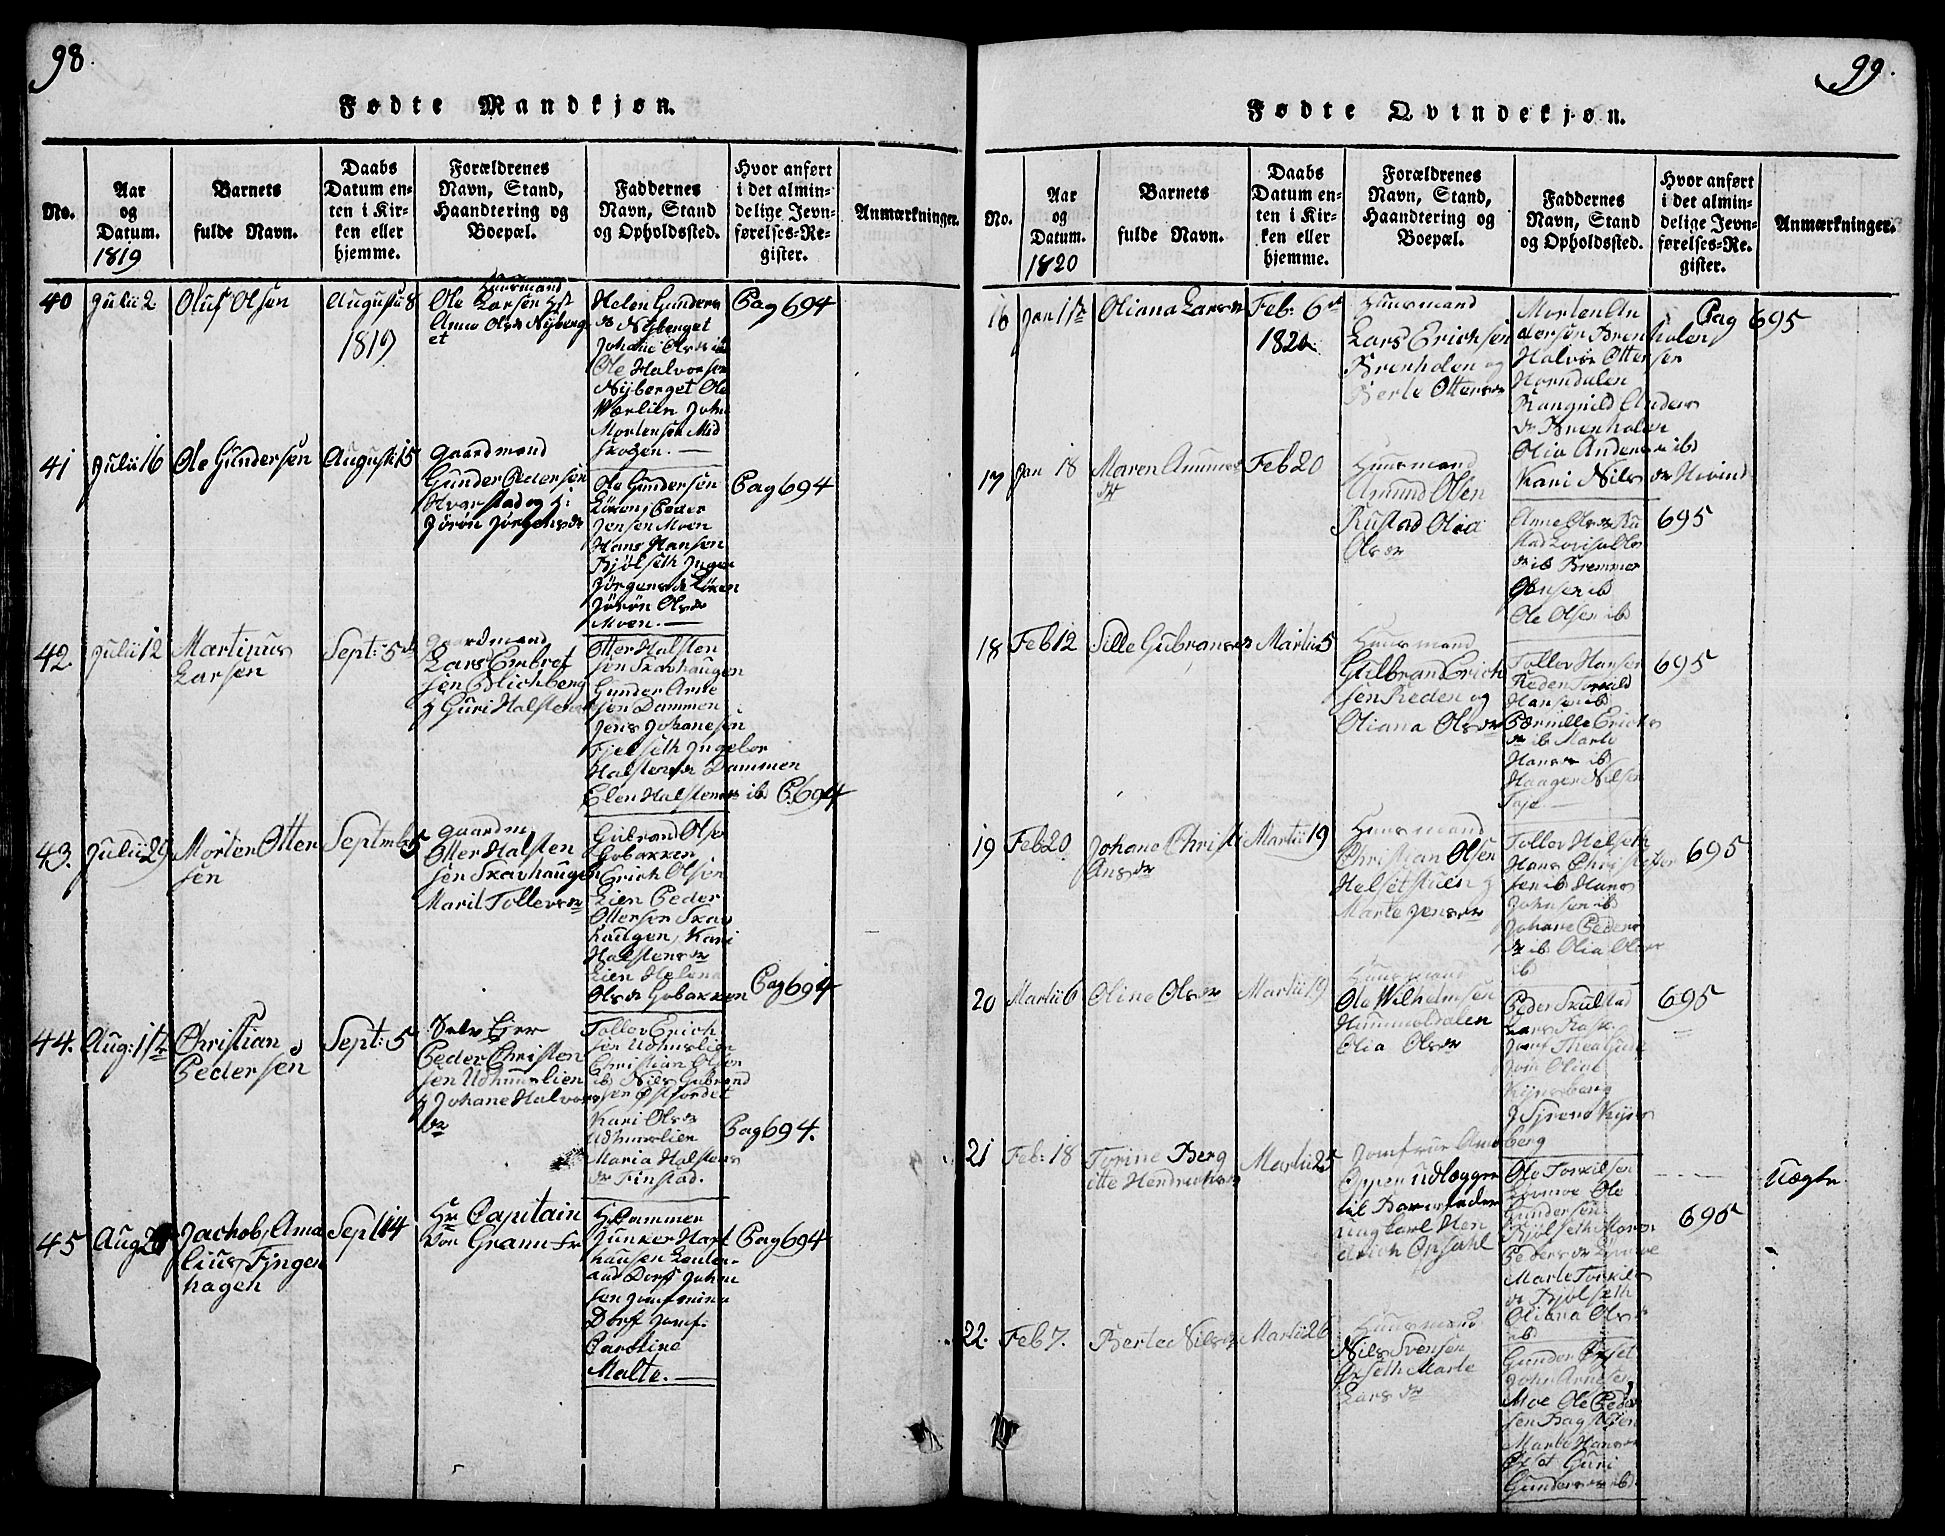 98.
Fødte Mandkjøn.
No.
Aar
og
Datum.
1819
Barnets
fulde Navn.
Daabs
Datum en-
ten i Kir-
ken eller
hjemme.
Forældrenes
Navn, Stand,
Haandtering og
Boepæl.
Faddernes
Navn, Stand
og Opholdssted.
Hvor anført
i det almin-
delige Jevn-
førelses-Re-
gister.
Anmærkninger.
40
Julii 2
Oluf Olsen
Augustii 8
1819
Huusmand
Ole Larsen
Anne Olsdr Nyberg
et
Helen Gunders
dr Nyberget
Johane Olsdr ib
Ole Halvorsen
Nyberget Ole
Værlien John
Mortensen Mid
skogen. —
Pag 694
41
Julii 16
Ole Gundersen
Augusti 15
Gaardmand
Gunder Pedersen
Hvarstad og H:
Jørøn Jørgensdr
Ole Gundersen
Løken, Peder
Jensen Moen
Hans Hansen
Kjølseth Inger
Jørgensdr Løken
Jørøn Olsdr
Moen. —
Pag 694
42
Julii 12
Martinus
Larsen
Sept: 5
Gaardmand
Lars Embret
sen Blichberg
H Guri Halstens
Otter Halsten
sen Skavhaugen
Gunder Arne
sen Dammen
Jens Johanesen
Fjelseth Ingebor
Halstensdr Dammen
Elen Halstens ib
P. 694
43.
Julii 29
Morten Otter
sen
Septemb 5
Gaardm
Otter Halsten
sen Skavhaugen
Marit Tollevsdr
Gulbrand Olsen
Gobakken
Erich Olsen
Lien Peder
Ottersen Skav
haugen, Kari
Halstensdr
Lien Helena
Olsdr Gobakken
Pag 694
44.
Aug: 1ste
Christian
Pedersen
Sept: 5
Selv Eier
Peder Christen
sen Udhuuslien
H Johane Halvors
dr
Tollov Erich
sen Udhuuslien
Christian Olsen
ib Nils Gubrand
sen Østfordet
Kari Olsdr
Udhuuslien
Maria Halstens
dr Finstad.
Pag 694.
45
Aug 2
Jachob, Ama
lius Fyngen
hagen
Sept 14
Hr Capitain
von Grann Fr
H Pammer
Junker Hart
hausen Leuten
and Dorf Johan
sen Jomf mina
Dorf Jomf:
Caroline
Malte. —
Pag 694
99.
Fødte Qvindekjøn.
No.
Aar
og
Datum.
1820
Barnets
fulde Navn.
Daabs
Datum en-
ten i Kir-
ken eller
hjemme.
Forældrenes
Navn, Stand,
Haandtering og
Boepæl.
Faddernes
Navn, Stand
og Opholdssted.
Hvor anført
i det almin-
delige Jevn-
førelses-Re-
gister.
Anmærkninger.
16
Jan 1ste
Oliana Larsdr
Feb: 6te
1820
Huusmand
Lars Erichsen
Brenholen og
Berte Ottersdr
Morten An
dersen Brenholen
Halvor Ottersen
Horndalen
Rangnild Anders
dr Brenholen
Olia Anders ib
Kari Nilsdr Hvind
Pag 695
17
Jan 18
Maren Amunds
dr
Feb 20
Huusmand
Amund Olsen
Rustad Olia
Olsdr
Anne Olsdr Ru
stad Lovisa Ols
dr ib Bremmer
Hansen ib
Ole Olsen ib
695
18
Feb 12
Sille Gubransdr
Martii 5
Huusmand
Gulbrand Erich
sen Reden og
Oliana Olsdr
Tollov Hansen
Reden Torkild
Hansen ib
Pernille Erichs
dr ib Marte
Hansdr ib
Haagen Nilsen
695
19
Feb 20
Johane Christi
Ansdr
Martii 19
Huusmand
Christian Olsen
Helsetstuen H
Marte Jensdr
Tollov Helseth
Hans Christofer
sen ib Hans
Johnsen ib
Johane Peders
dr ib Olia Olsdr
ib
695
20
Martii 6
Oline Olsdr
Martii 19
Huusmand
Ole Wilhelmsen
Hummeldalen
Olia Olsdr
Peder Skulstad
Lars Rask
Jomf Thea
Jom Oline
Kynsberg
J Syrene Kyns
berg
695
21
Feb: 18
Torine Berg
itte Hendrichsdr
Martii 25
Jomfrue Ama
Oppen udlægger
til Barnefader
ung Carl Hen
drich Opsahl
Ole Torkilsen
Lomoe Ole
Gundersen
Kjølseth Maren
Pedersdr Lomoe
Marte Torkils
dr Kjølseth
Oliana Olsdr
ib
695
Uægte
22.
Feb 7.
Berte Nilsdr
Martii 26
Huusmand
Nils Svensen
Øxseth Marte
Larsdr
Gunder Øxset
John Arnesen
Moe Ole Peder
sen Bagstuen
Marte Hansdr
Øxset Guri
Gundersdr ib